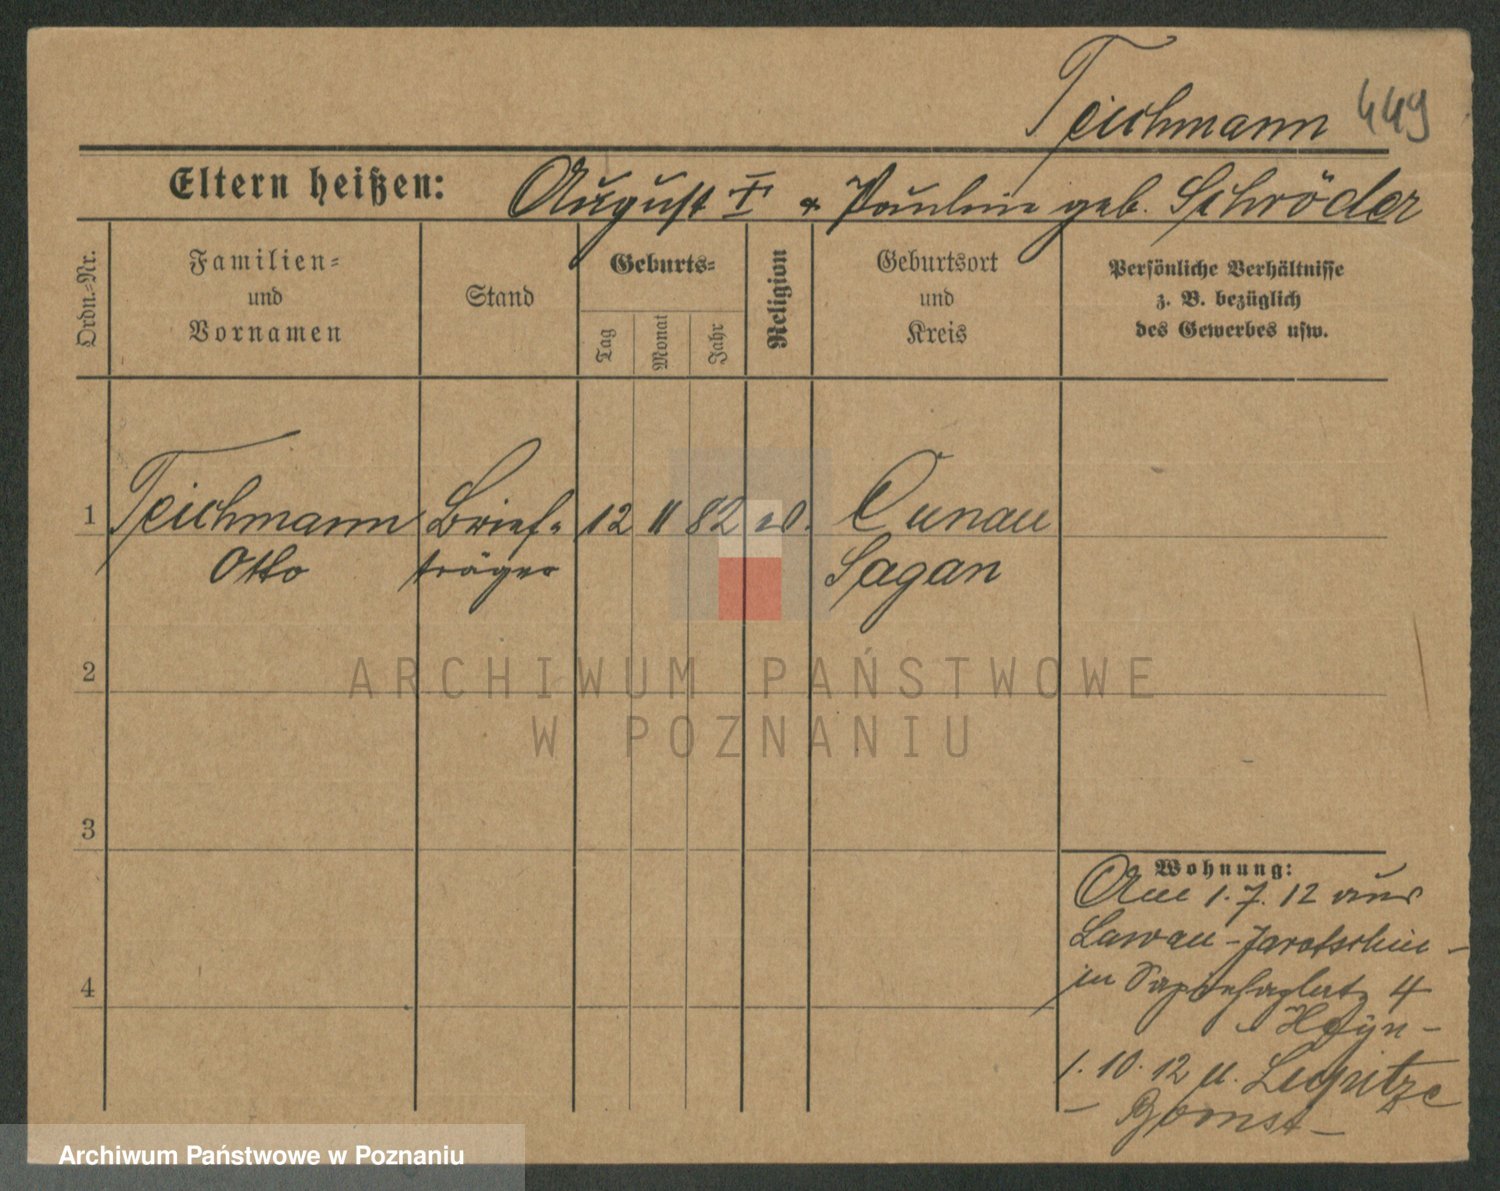 Teichmann 449
Eltern heißen: August † & Pauline geb. Schröder
Ordn.-Nr.
Familien-
und
Vornamen
Stand
Geburts-
Tag
Monat
Jahr
Religion
Geburtsort
und
Kreis
Persönliche Verhältnisse
z. B. bezüglich
des Gewerbes usw.
1 Teichmann Brief- 12 11 82 Cunau
Otto träger Sagan
2
ARCHIWUM PAŃSTWOWE
W POZNANIU
3
Wohnung:
Am 1.7.12 aus
- Jarotschin -
in Sapiehaplatz 4
4
1.10.12 n.
- Bomst -
Archiwum Państwowe w Poznaniu